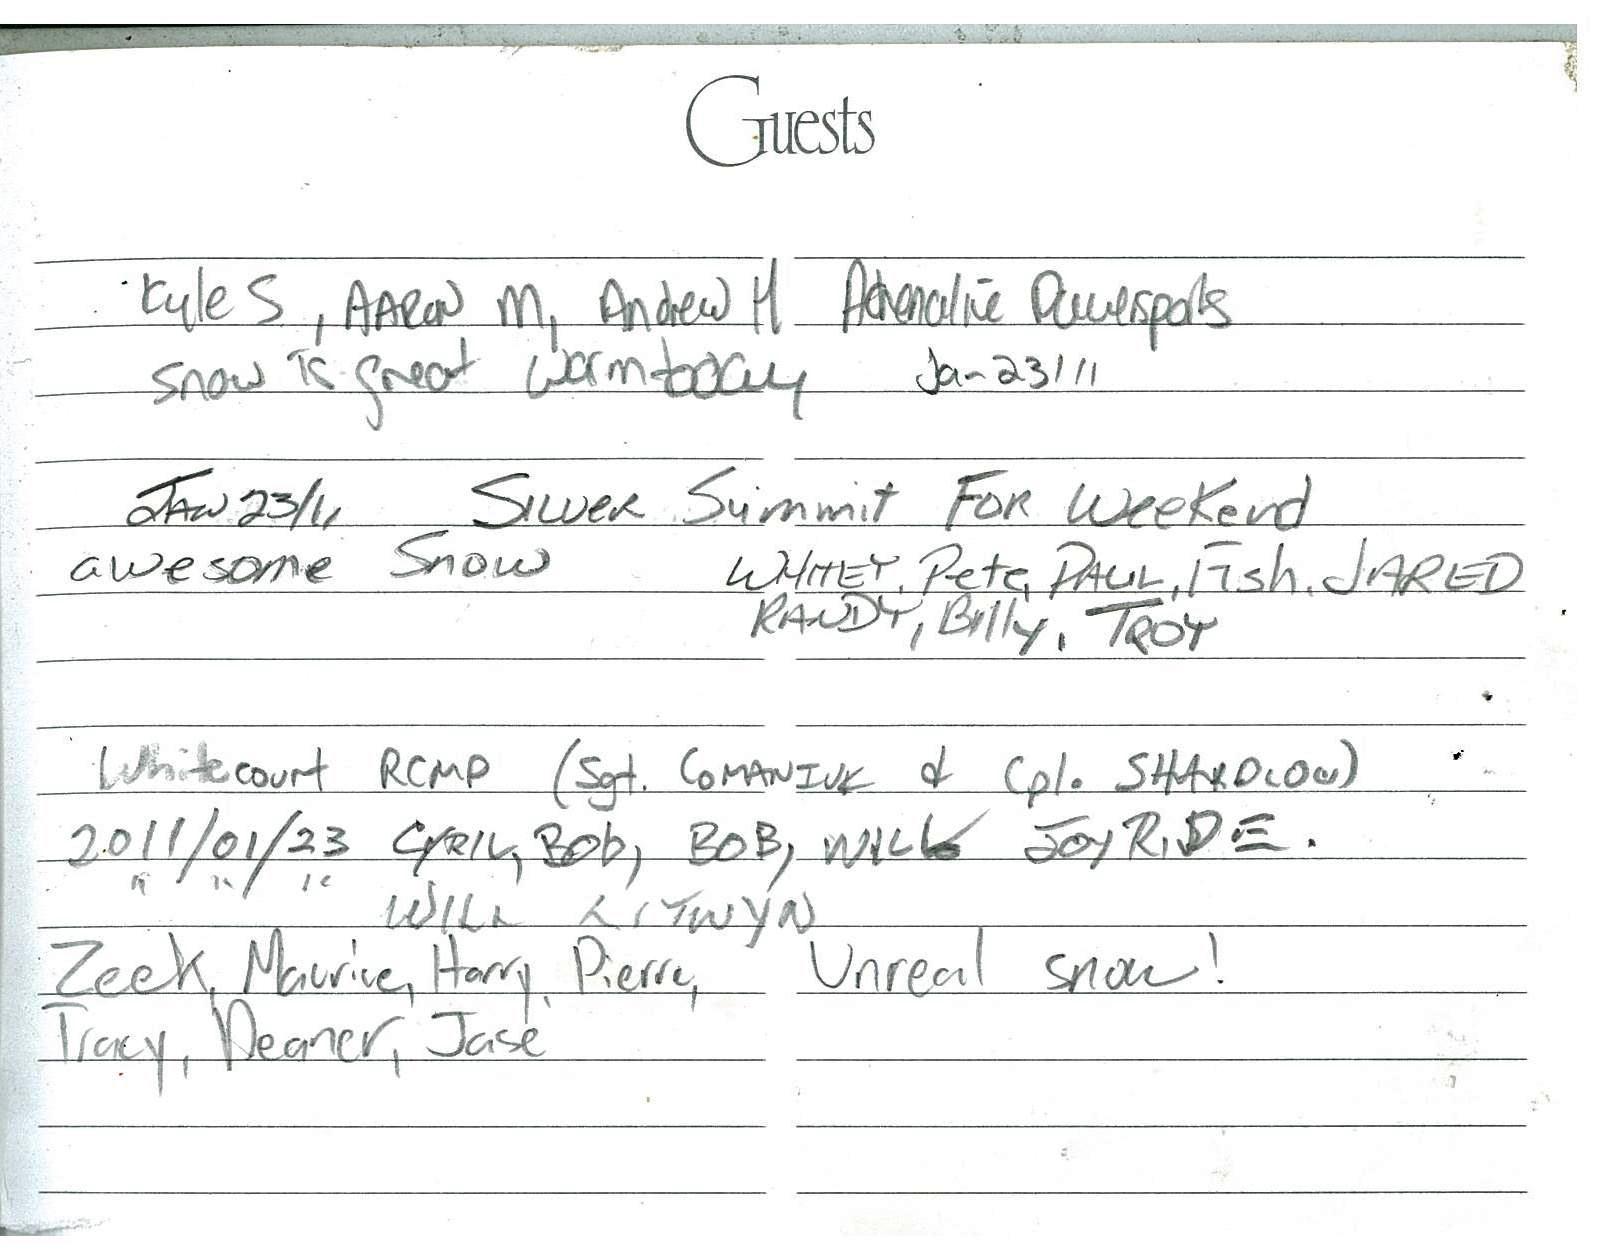 Guests
Kyle S, AARON M, Andrew H Adrenaline Powersports
snow is great warm today Jan 23/11
JAN 23/11 SILVER Summit FOR WeeKend
awesome Snow WHITEY, Pete, PAUL, Fish, JARED
RANDY, Billy, TROY
Whitecourt RCMP (Sgt. COMANIUK & Cpl. SHARDLOW)
2011/01/23 CYRIL, Bob, BOB, WILL JOYRIDE.
" " " WILL LITWYN
Zeek, Maurice, Harry, Pierre, Unreal snow!
Tracy, Deaner, Jase